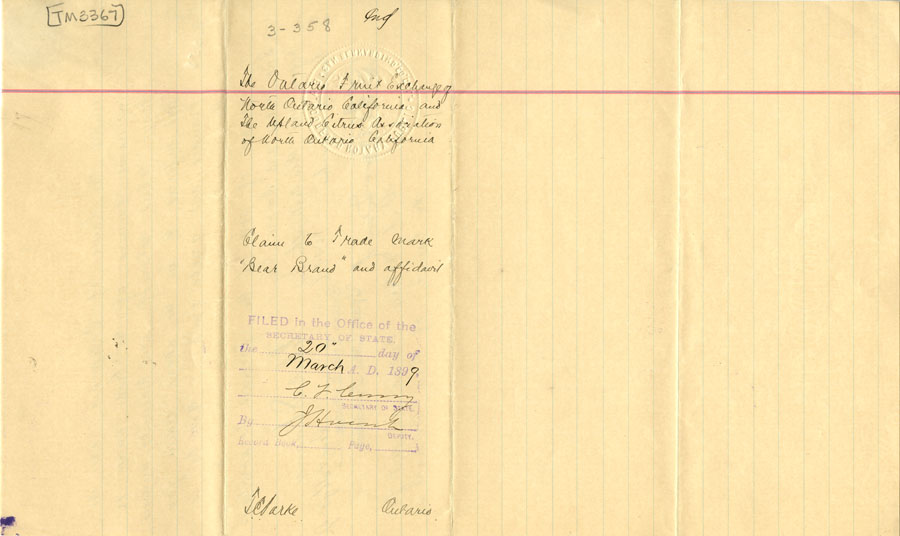 TM3367
3-358
Ind
The Ontario Fruit Exchange of
North Ontario California and
The Upland Citrus Association
of North Ontario California
Claim to Trade Mark
"Bear Brand" and affidavit
FILED in the Office of the
SECRETARY OF STATE,
the 20" day of
March A. D. 1899
C. F. Curry
SECRETARY OF STATE.
By
DEPUTY.
Record Book, Page,
Ontario